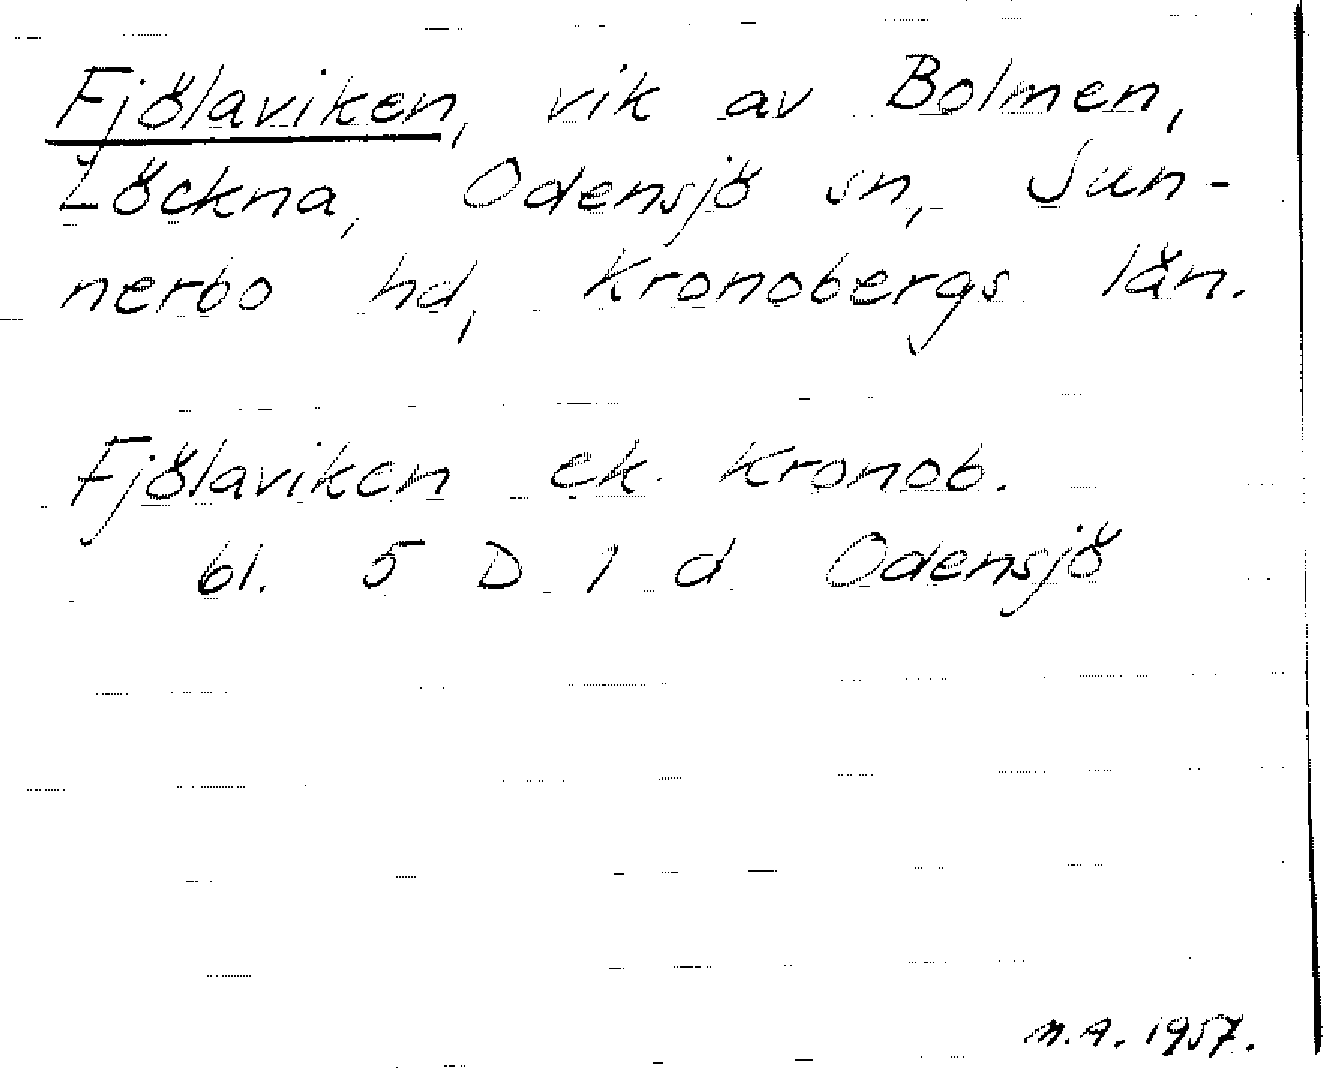 Fjölaviken, vik av Bolmen,
Löckna, Odensjö sn, Sun-
nerbo hd, Kronobergs län.
Fjölaviken ek. Kronob.
bl. 5 D 1 d Odensjö
n.A. 1957.